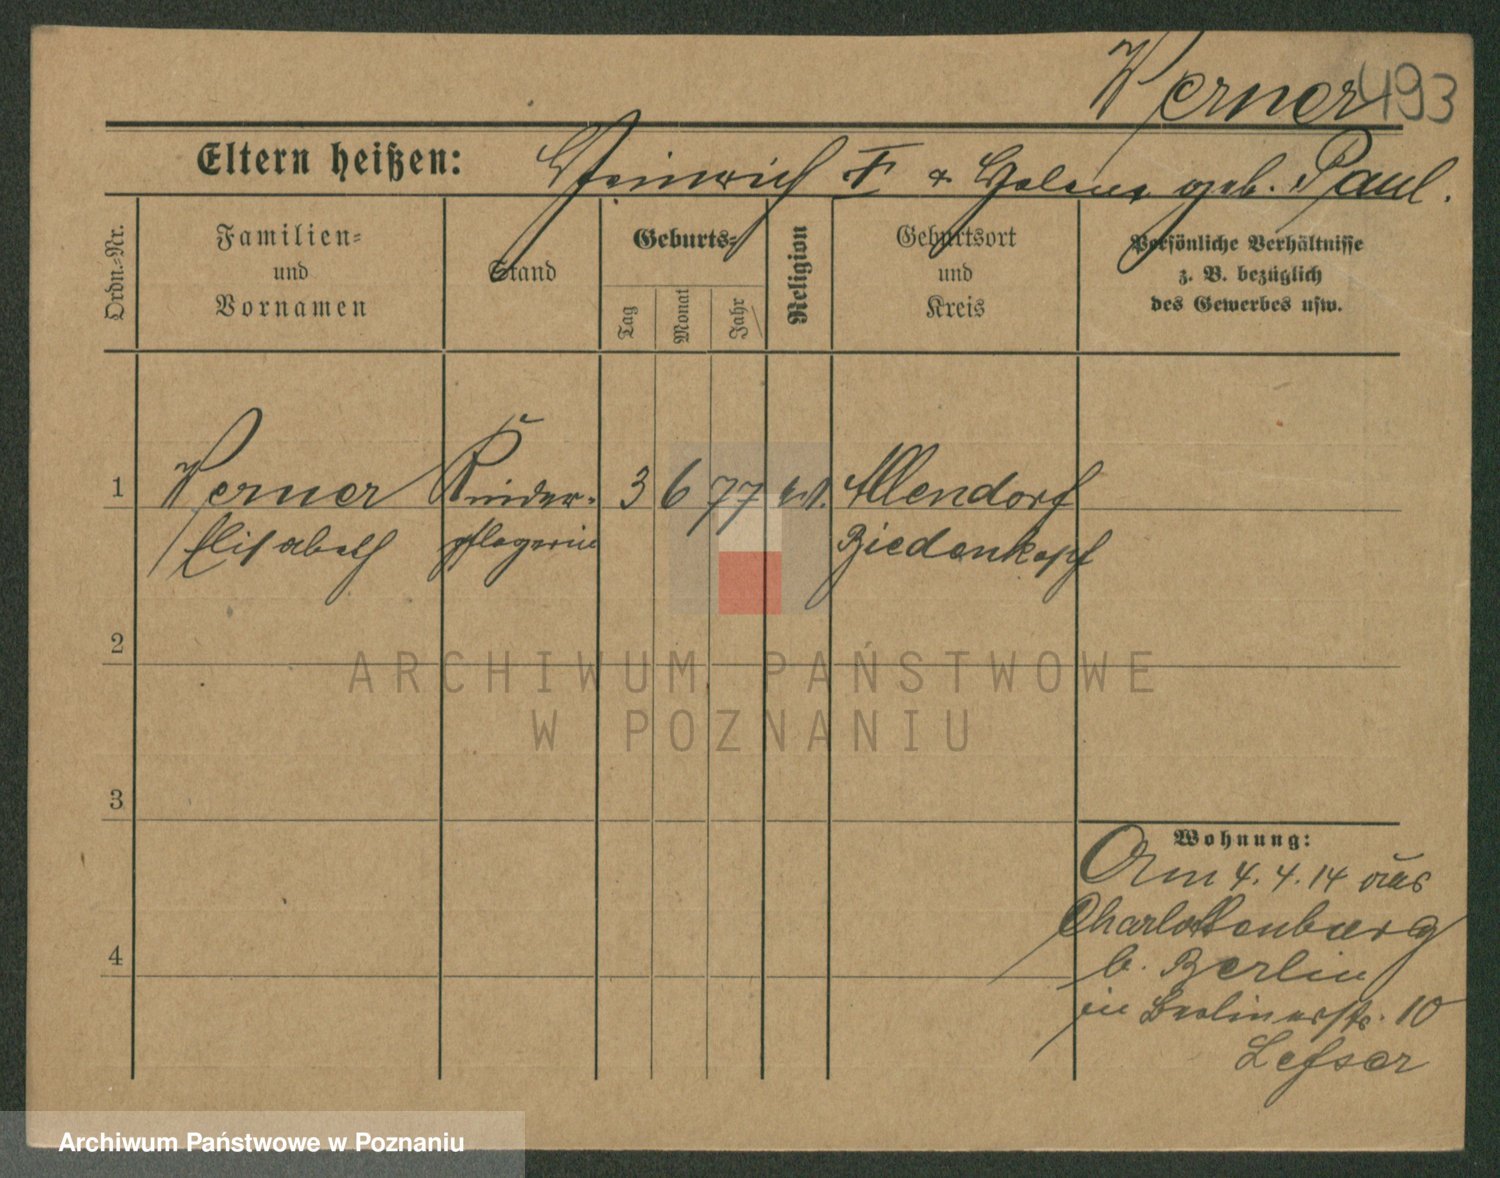 Werner 493
Eltern heißen: Heinrich F. & Helene geb. Paul.
Ordn.-Nr.
Familien-
und
Vornamen
Stand
Geburts-
Tag
Monat
Jahr
Religion
Geburtsort
und
Kreis
Persönliche Verhältnisse
z. B. bezüglich
des Gewerbes usw.
1 Werner Kinder- 3 6 77 ev. Allendorf
Elisabeth pflegerin Biedenkopf
2
3
4
Wohnung:
Am 4.4.14 aus
Charlottenburg
b. Berlin
in Berlinerstr. 10
ARCHIWUM PAŃSTWOWE
W POZNANIU
Archiwum Państwowe w Poznaniu